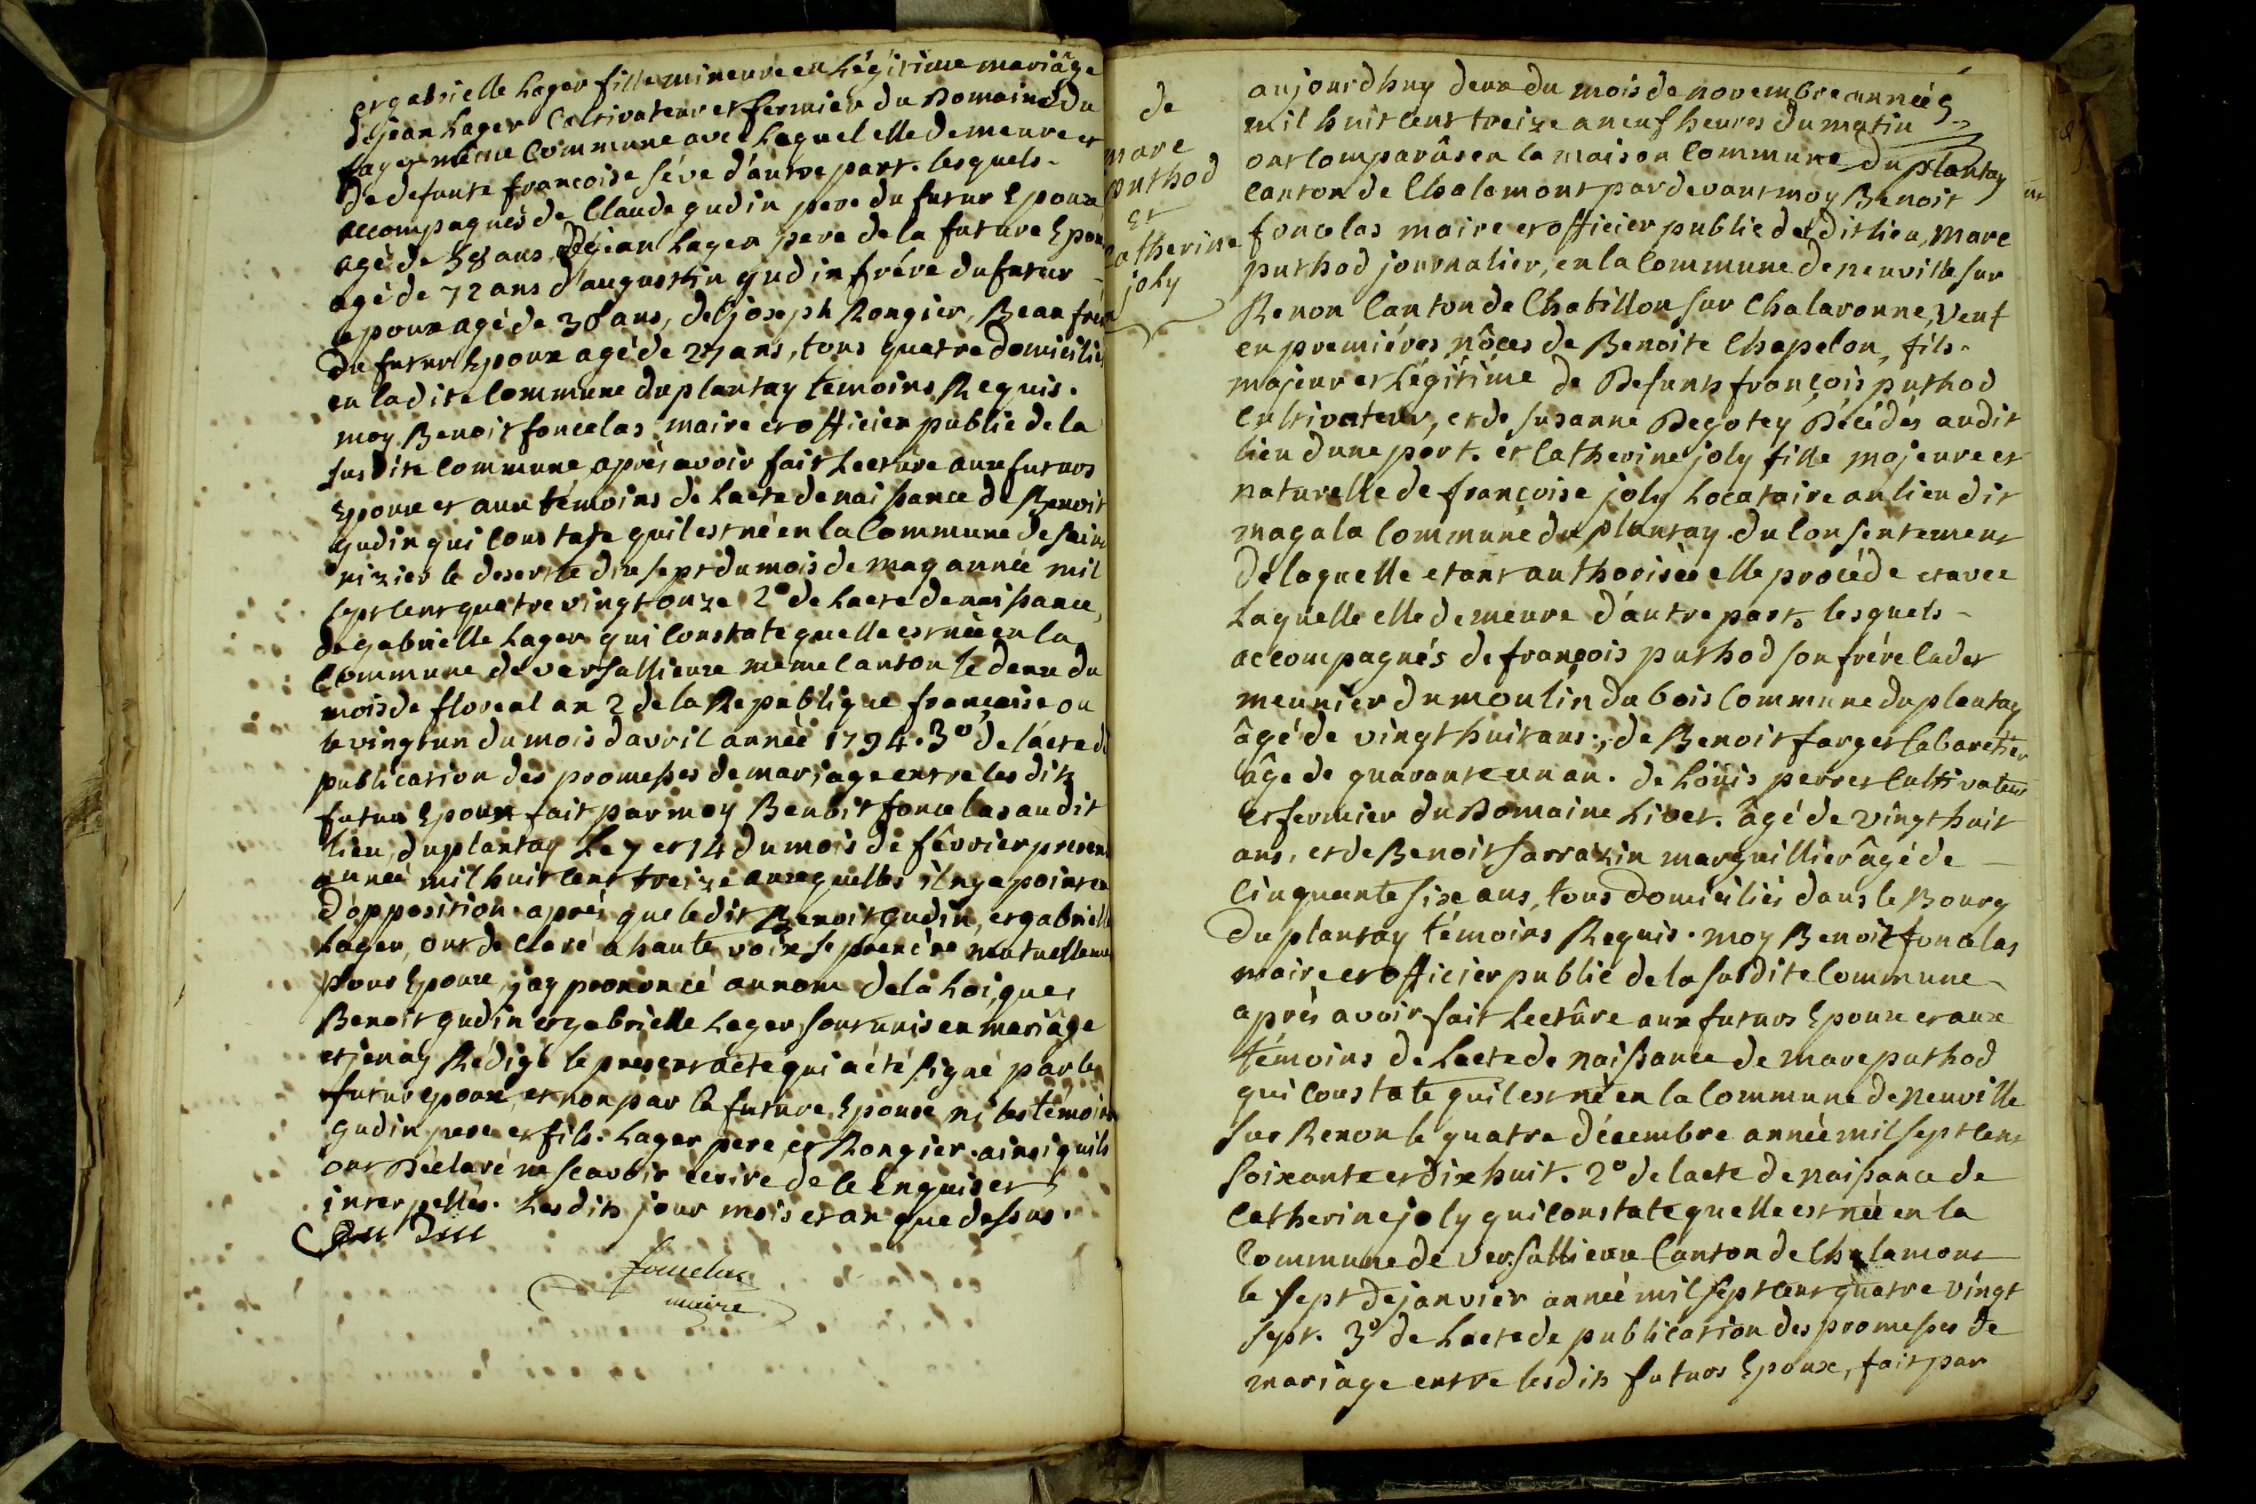 et gabrielle Lager fille mineure en Légitime mariâge
de jean Lager Cultivateur et fermier du Domaine du
fay même Commune avec Laquel elle demeure et
de defunte françoise séve d'autre part. lesquels
accompagnés de Claude gudin pere du futur Epoux
agé de 58 ans, De jean Lager pere de la future Epouse
agé de 72 ans d'augustin gudin frére du futur
epoux agé de 30 ans, de joseph Rongier, Beau frére
du futur Epoux agé de 27 ans, tous quatre domiciliés
en ladite Commune du plantay temoins Requis.
moy Benoit foncelas maire et officier public de la
susdite Commune après avoir fait Lectûre aux futurs
Epoux et aux témoins de Lacte de naissance de Benoit
gudin qui Constate quil est né en la Commune de saint
nizier le desert le dix sept du mois de may année mil
sept Cent quatre vingt onze 2° de Lacte de naissance,
de gabrielle Lager qui Constate quelle est née en la
Commune de versallieux meme Canton le deux du
mois de floreal an 2 de la Republique française ou
le vingt un du mois davril année 1794. 3° de lácte de
publication des promesses de mariage entre les dits
futurs Epoux fait par moy Benoit foncelas audit
lieu, du plantay Le 7 et 14 du mois de fêvrier present
année mil huit Cent treize auxquelles il ny a point eu
d'opposition. aprés que ledit Benoit Gudin, et gabrielle
Lager, ont declaré a haute voix se prendre mutuellement
pour Epoux, jay prononcé au nom de la Loi, que,
Benoit gudin et gabrielle Lager, sont unis en mariâge
et jen ay Rédigé le present acte qui a été signé par le
futur epoux, et non par la future Epouse ni les témoins
gudin pere et fils. Lager pere, et Rongier. ainsi quils
ont Déclaré ne scavoir ecrire de ce enquis et
interpellés. Lesdits jour mois et an que dessus.
foncelas
maire
de
marc
puthod
et
Catherine
joly
aujourdhuy deux du mois de novembre année
mil huit Cent treize a neuf heures du matin
ont Comparûs en la maison Commune du plantay
Canton de Chalamont par devant moy Benoit
foncelas maire et officier public dudit lieu, marc
puthod journalier, en la Commune de neuville sur
Renon Canton de Chatillon sur Chalaronne, Veuf
en premiéres nôces de Benoite Chapelon, fils
majeur et Légitime de Defunts françois puthod
Cultivateur, et de susanne Degotey Décédés audit
lieu dune part. et Catherine joly fille majeure et
naturelle de françoise joly Locataire au lieu dit
magala Commune du plantay. du Consentement
de laquelle etant authorisée elle procéde et avec
Laquelle elle demeure d'autre part. lesquels
accompagnés de françois puthod son frére Cadet
meunier du moulin du bois Commune du plantay
âgé de vingt huit ans., de Benoit farget Cabaretier
âge de quarante un an. de Loüis perret Cultivateur
et fermier du Domaine Livet. âgé de vingt huit
ans, et de Benoit sarrazin marguillier âgé de
Cinquante six ans, tous domiciliés dans le Bourg
du plantay témoins Requis. moy Benoit foncelas
maire et officier public de la susdite Commune
après avoir fait Lectûre aux futurs Epoux et aux
témoins de Lacte de naissance de marc puthod
qui Constate quil est né en la Commune de neuville
sur Renon le quatre décembre année mil sept Cent
soixante et dix huit. 2° de lacte de naissance de
Catherine joly qui Constate quelle est née en la
Commune de versallieux Canton de Chalamont
le sept de janvier année mil sept Cent quatre vingt
sept. 3° de Lacte de publication des promesses de
mariage entre lesdits futurs Epoux, fait par